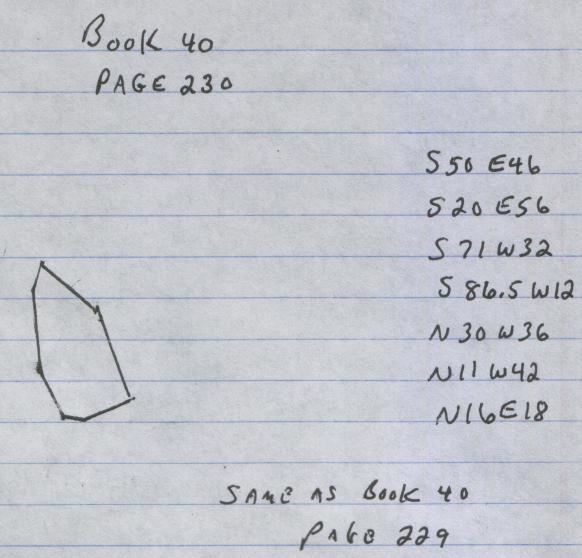 BOOK 40
PAGE 230
S 50 E 46
S 20 E 56
S 71 W 32
S 86.5 W 12
N 30 W 36
N 11 W 42
N 16 E 18
SAME AS BOOK 40
PAGE 229